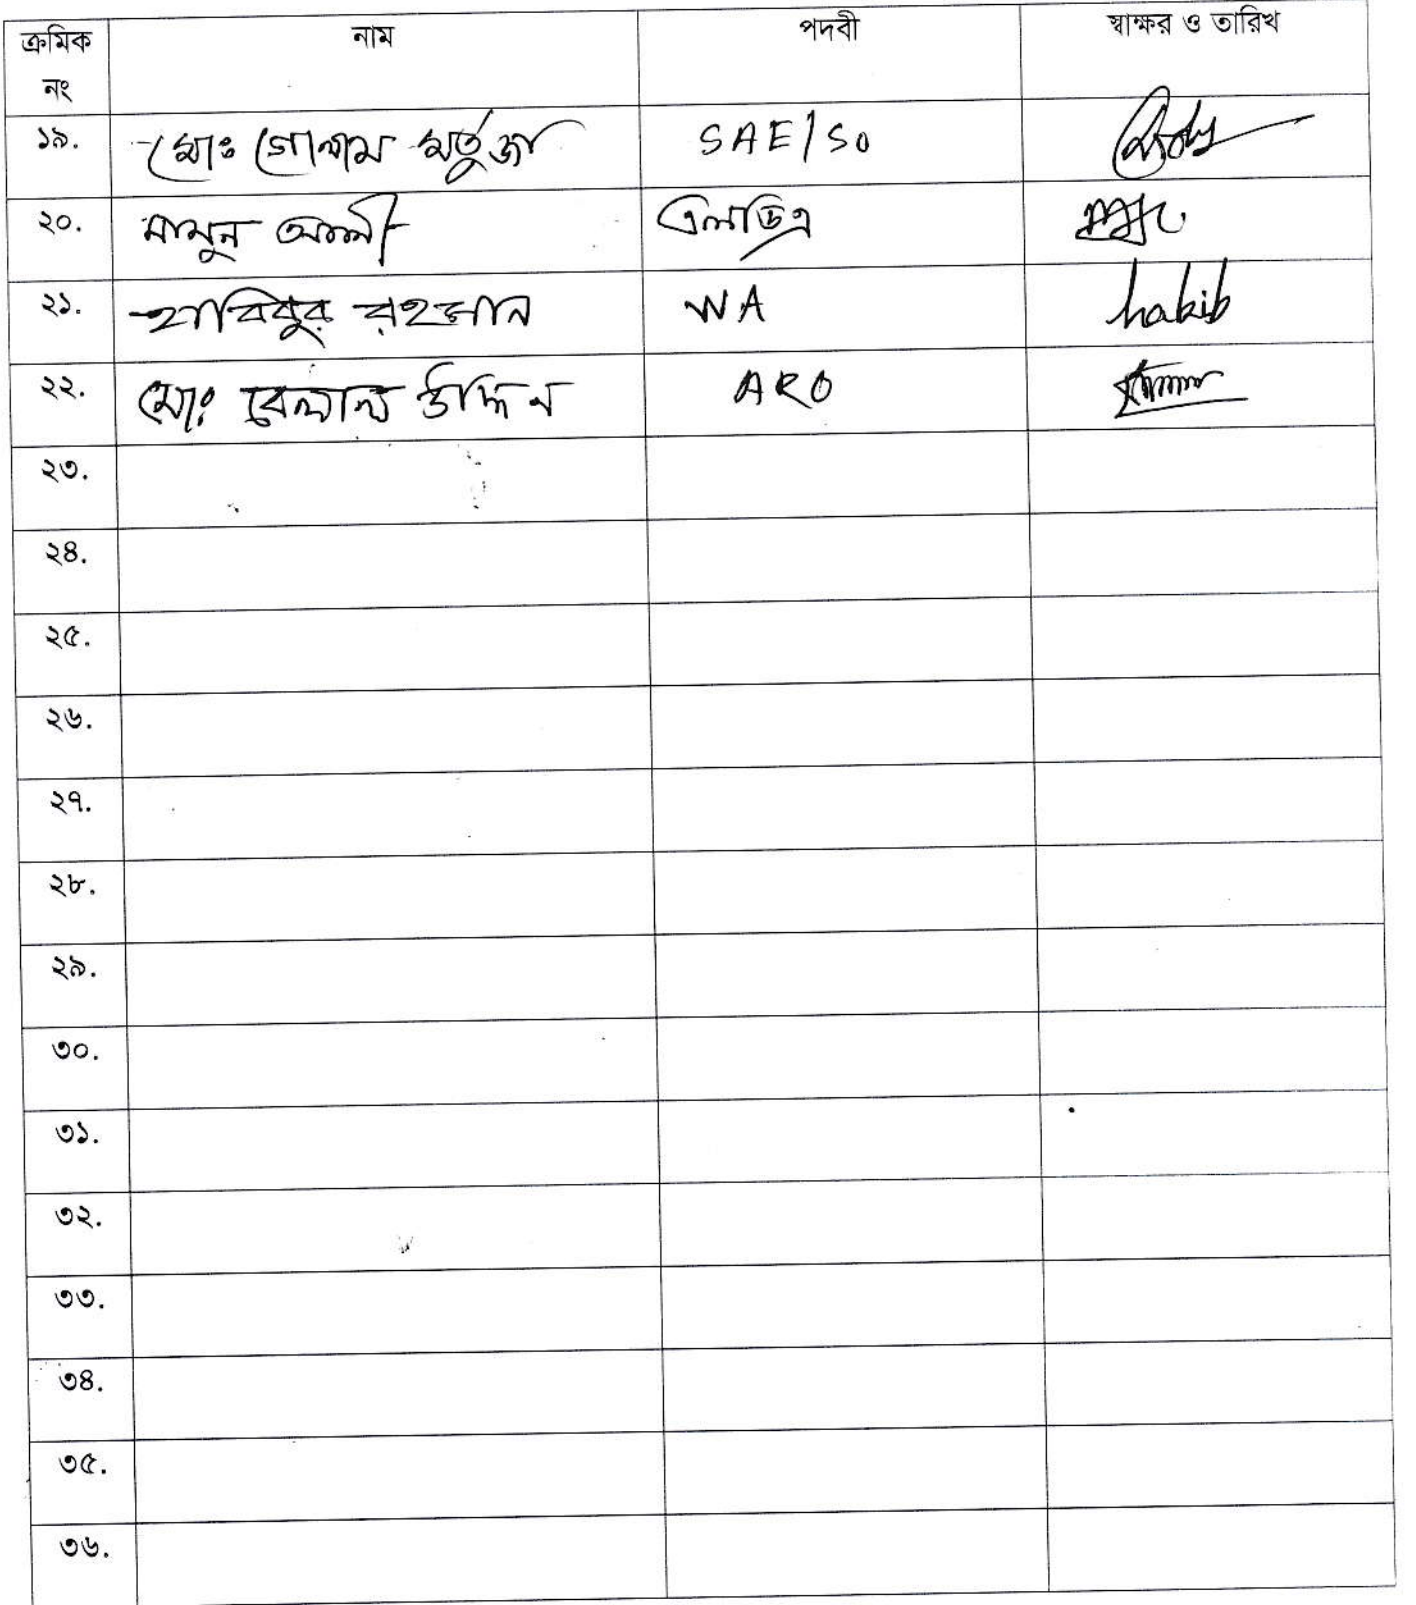 ক্রমিক নং নাম পদবী স্বাক্ষর ও তারিখ
১৯. মোঃ গোলাম মর্তুজা SAE/SO
২০. মামুন আলী এলডিএ
২১. হাবিবুর রহমান WA habib
২২. মোঃ বেলাল উদ্দিন ARO
২৩.
২৪.
২৫.
২৬.
২৭.
২৮.
২৯.
৩০.
৩১.
৩২.
৩৩.
৩৪.
৩৫.
৩৬.